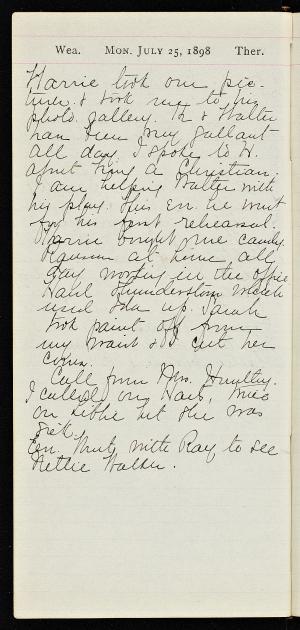 Wea. MON. JULY 25, 1898 Ther.
Harrie took our pic-
ture & took me to his
photo. gallery. H & Walter
have been very gallant
all day. I spoke to H.
about being a Christian.
I am helping Walter with
his play. This Eve. he went
for his first rehearsal.
Harrie bought me candy.
at home all
day working in the office
Hard thunderstorm which
used up. Sarah
took paint off from
my waist & I cut her
corns.
Call from Mrs. Huntley.
I called on
on Libbie but she was
sick.
Eve. Went with Ray to see
Nettie Walker.